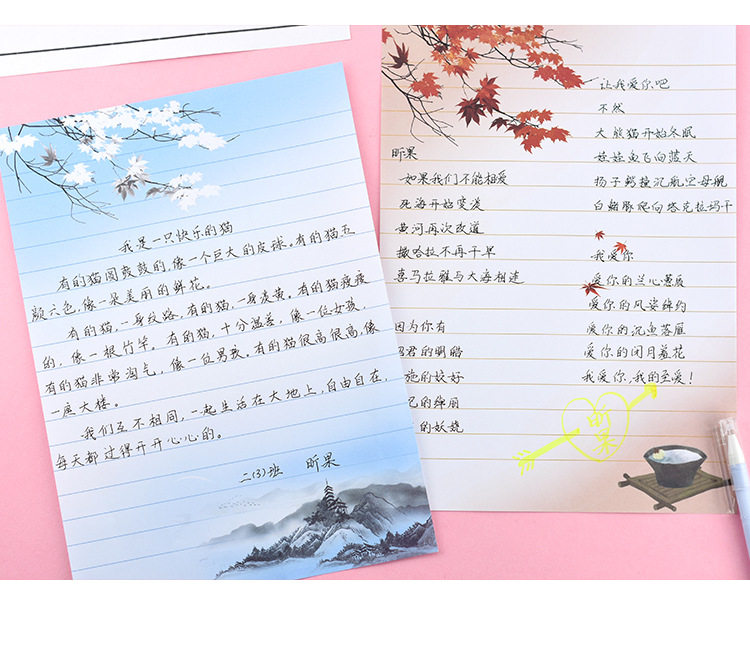 我是一只快乐的猫
有的猫圆鼓鼓的,像一个巨大的皮球。有的猫五
颜六色,像一朵美丽的鲜花。
有的猫,一身纹路。有的猫,一身发黄。有的猫瘦瘦
的,像一根竹竿。有的猫,十分温柔,像一位女孩,
有的猫非常淘气,像一位男孩。有的猫很高很高,像
一座大楼。
我们互不相同,一起生活在大地上,自由自在,
每天都过得开开心心的。
二(3)班 昕果
昕果
如果我们不能相爱
死海开始变浅
黄河再次改道
撒哈拉不再干旱
喜马拉雅与大海相连
因为你有
君的明皓
施的姣好
己的绰丽
的妖娆
让我爱你吧
不然
大熊猫开始冬眠
娃娃鱼飞向蓝天
扬子鳄撞沉航空母舰
白鳍豚爬向塔克拉玛干
我爱你
爱你的兰心蕙质
爱你的风姿绰约
爱你的沉鱼落雁
爱你的闭月羞花
我爱你,我的至爱!
昕果